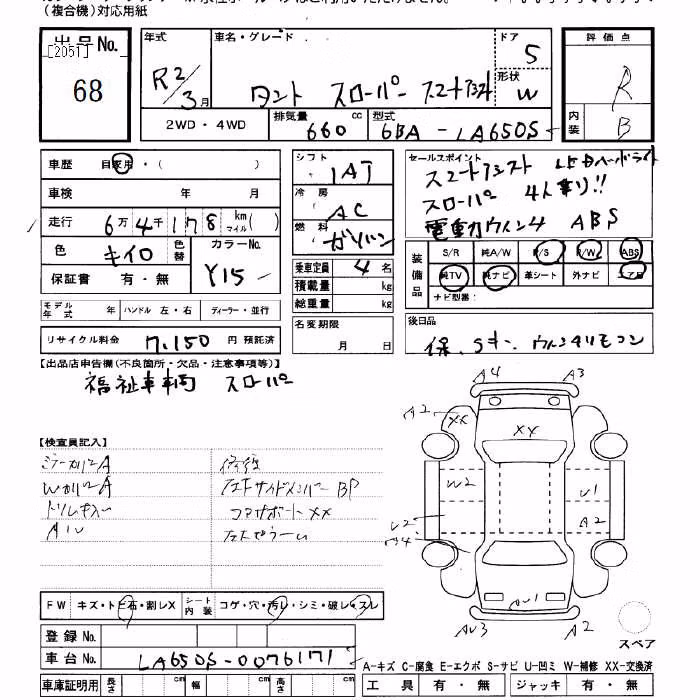 (複合機)対応用紙
出品No.
[2051]
68
年式
R2/3月
車名・グレード
タント スローパー スマートアシスト
ドア
5
形状
W
2WD・4WD
排気量
660 cc
型式
6BA - LA650S
評価点
R
内装
B
車歴 自家用・( )
車検 年 月
走行 6万4千178km マイル( )
色 キイロ 色替
カラーNo. Y15
保証書 有・無
モデル年式 ハンドル 左・右 ディーラー・並行
リサイクル料金 7,150 円 預託済
シフト IAT
冷房 AC
燃料 ガソリン
乗車定員 4 名
積載量 kg
総重量 kg
名変期限
月 日
セールスポイント
スマートアシスト LEDヘッドライト
スローパ 4人乗り!!
電動ウィンチ ABS
装備品
S/R 純A/W P/S P/W ABS
純TV 純ナビ 革シート 外ナビ エアB
ナビ型番:
後日品
保、Sキー、ウィンチリモコン
【出品店申告欄(不良箇所・欠品・注意事項等)】
福祉車輌 スローパ
【検査員記入】
ミラーカバーA
WカバーA
トリムキズ
修復
左F サイドメンバー BP
コアサポート XX
A4
A3
A2
XX
XX
W2
U1
U2
A2
AU1
AU3
A2
スペア
FW キズ・トビ石・割レX
シート内装 コゲ・穴・汚レ・シミ・破レ・スレ
登録No.
車台No. LA650S-0076171
車庫証明用 長さ cm 幅 cm 高さ cm
A-キズ C-腐食 E-エクボ S-サビ U-凹ミ W-補修 XX-交換済
工具 有・無 ジャッキ 有・無